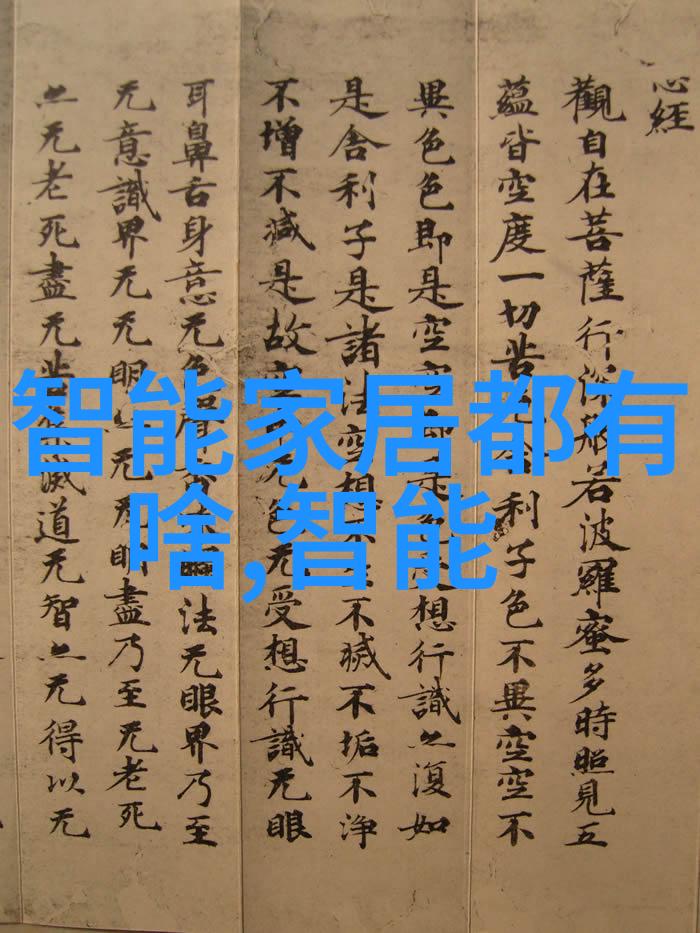 心經
觀自在菩薩行深般若波羅蜜多時照見五
蘊皆空度一切苦舍利子色不異空空不
異色色即是空空即是色受想行識亦復如
是舍利子是諸法空想不不滅不垢不淨
不增不減是故空无色无受想行識无眼
耳鼻舌身意无色聲法无眼界乃至
无意識界无无明亦无无明盡乃至无老死
亦无老死盡无苦集滅道无智亦无得以无
智能家居都有
啥,智能